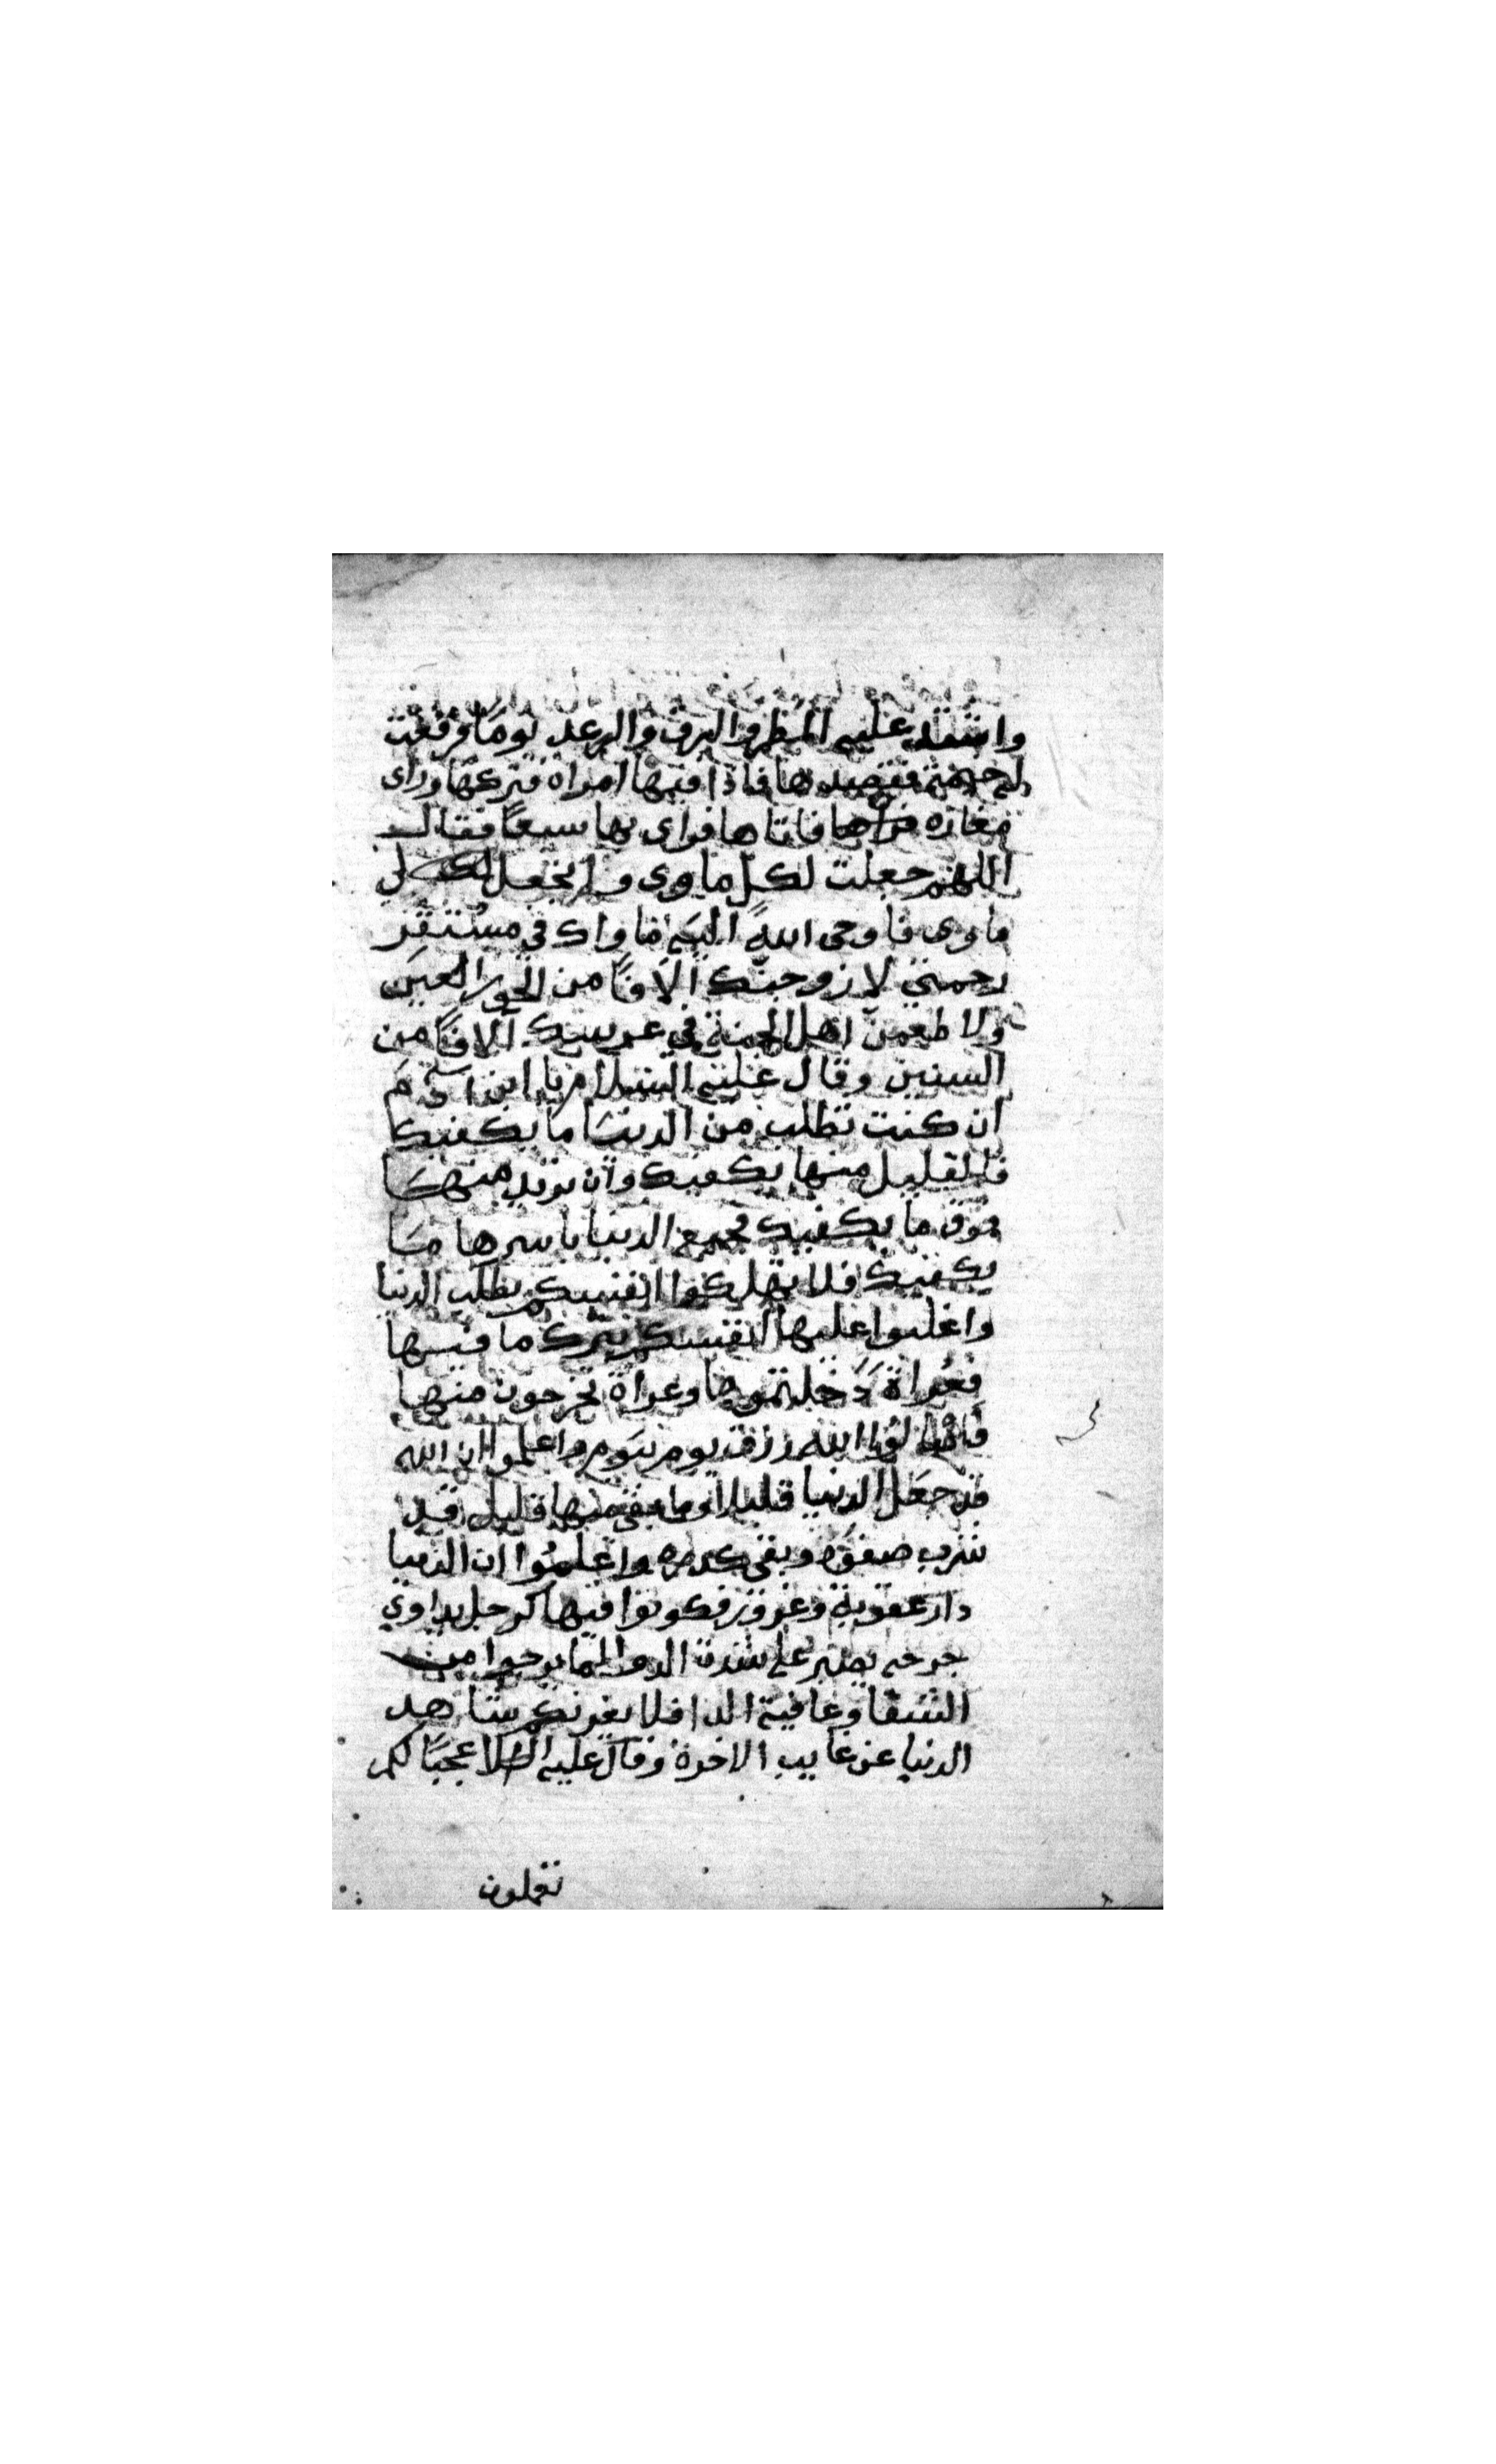 واشتد عليه المطر والبرق والرعد يوما فرفعت
له خيمة فقصدها فاذا فيها امراة فتركها وراى
مغارة فاتاها فراى بها سبعا فقال
اللهم جعلت لكل ماوى ولم تجعل لي
ماوى فاوحى الله اليه ماواك في مستقر
رحمتي لازوجنك الافا من الحور العين
ولاطعمن اهل الجنة في عرسك الافا من
السنين وقال عليه السلام يا ابن ادم
ان كنت تطلب من الدنيا ما يكفيك
فالقليل منها يكفيك وان تريد منها
فوق ما يكفيك فجميع الدنيا باسرها ما
يكفيك فلا تهلكوا انفسكم بطلب الدنيا
واغلبوا عليها انفسكم بترك ما فيها
فعراة دخلتموها وعراة تخرجون منها
فاسالوا الله رزق يوم بيوم واعلموا ان الله
قد جعل الدنيا قليلا وما بقي منها قليل قد
شرب صفوه وبقي كدره واعلموا ان الدنيا
دار عقوبة وغرور فكونوا فيها كرجل يداوي
جرحه يصبر على شدة الدوا لما يرجوا من
الشفا وعافية الدا فلا يغرنكم شاهد
الدنيا عن غايب الاخرة وقال عليه السلام عجبا لكم
تعملون